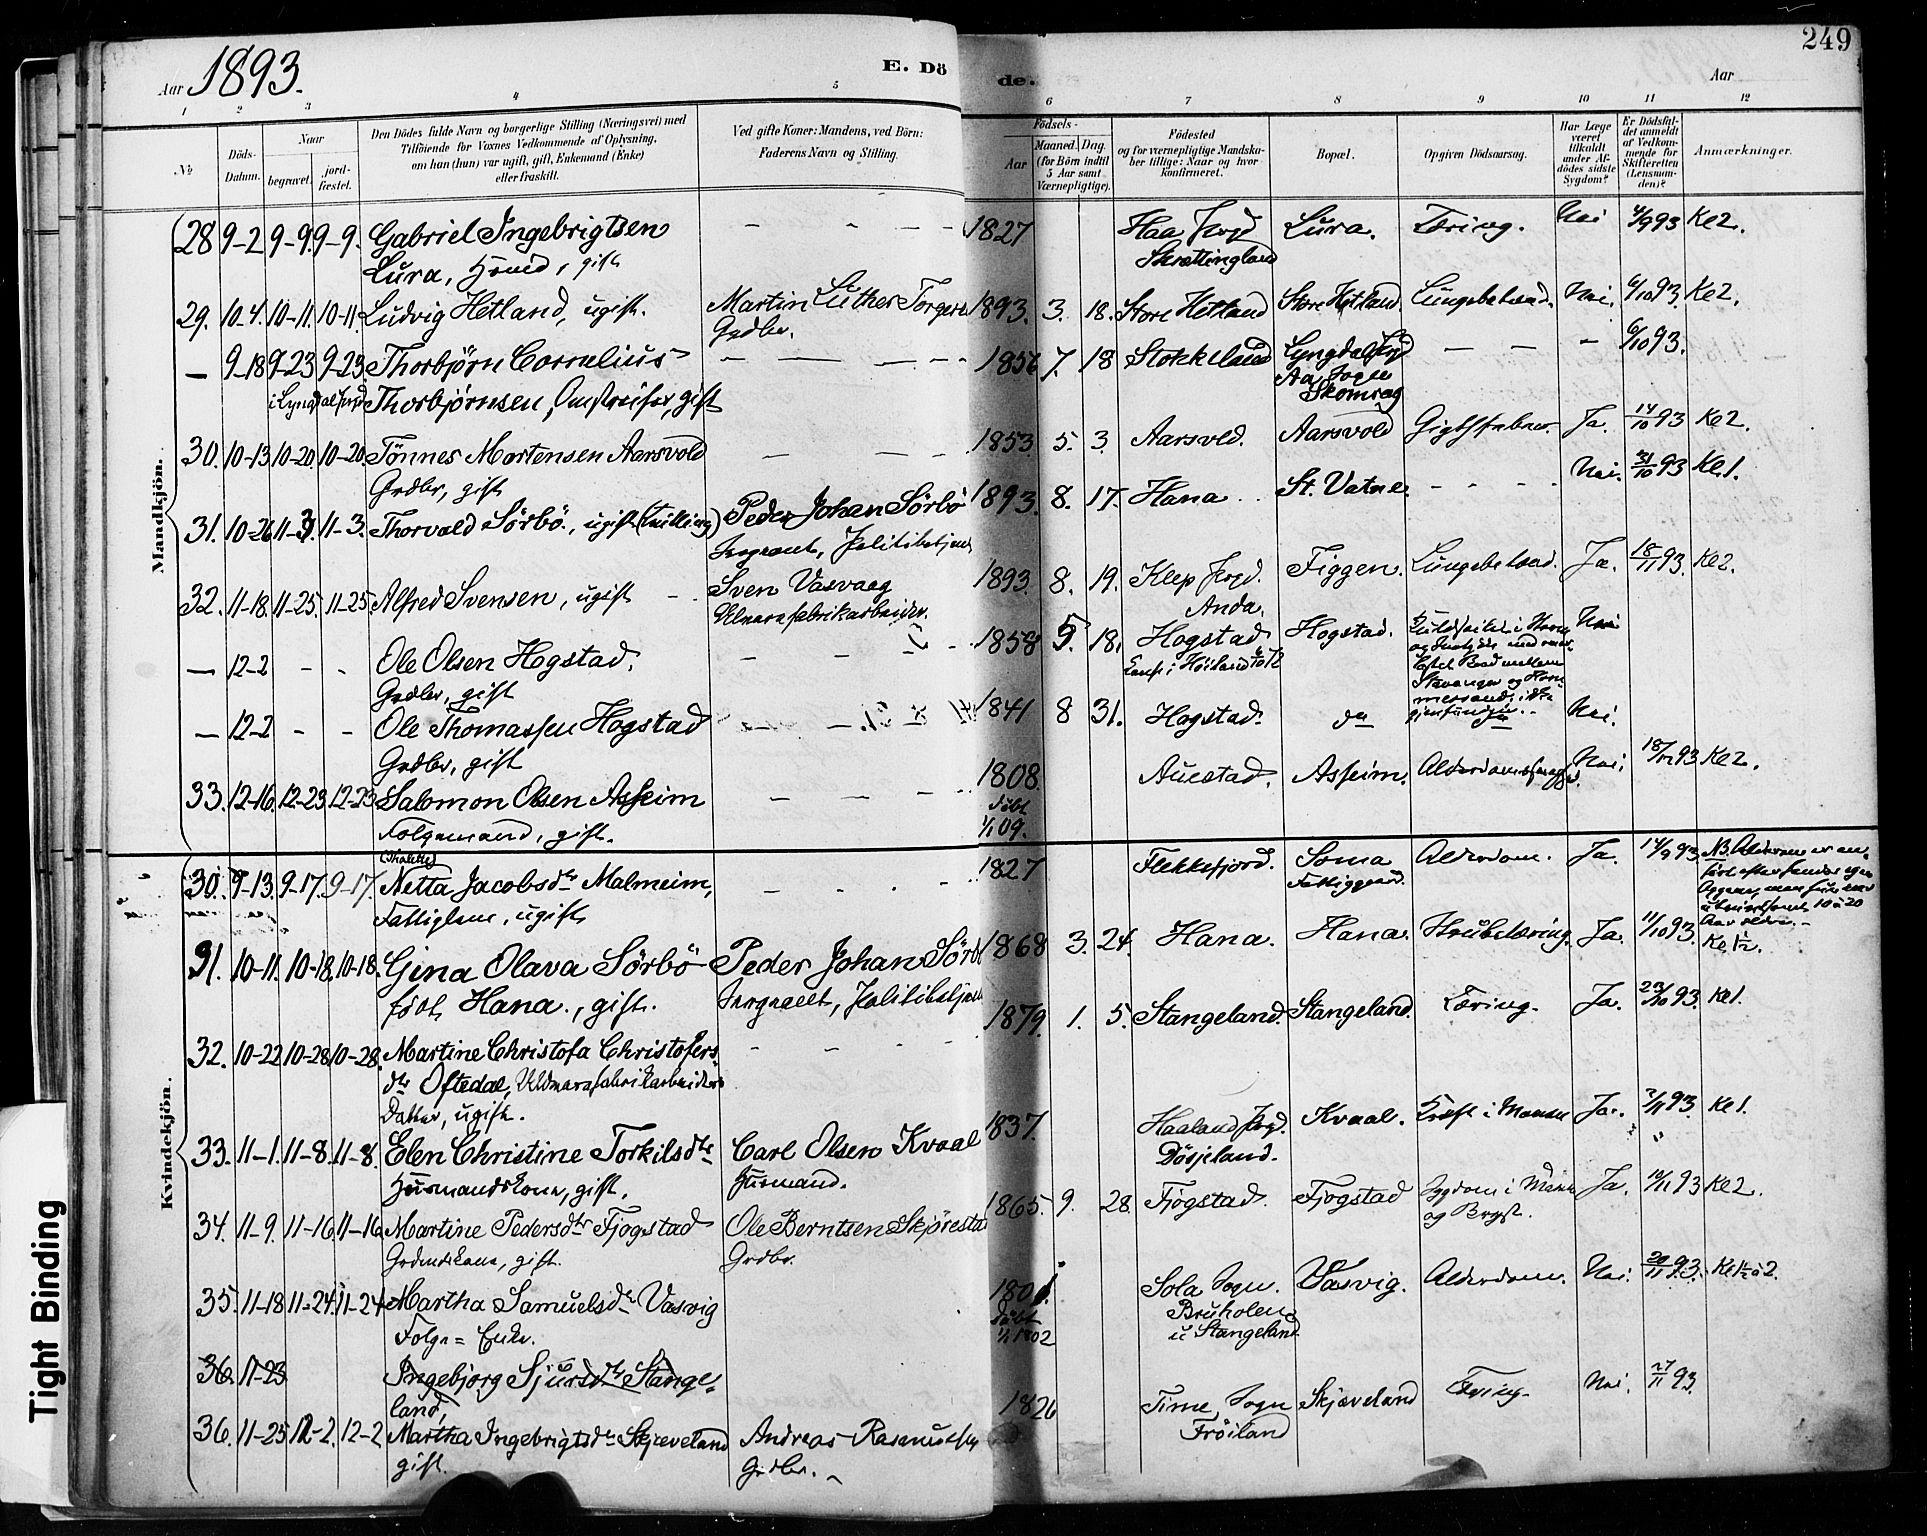 249
Aar 1893. E. Døde. Aar
1 2 3 4 5 6 7 8 9 10 11 12
No Døds-Datum. Naar begravet. jord-fæstet. Den Dødes fulde Navn og borgerlige Stilling (Næringsvei) med Tilføiende for Voxnes Vedkommende af Oplysning, om han (hun) var ugift, gift, Enkemand (Enke) eller fraskilt. Ved gifte Koner: Mandens, ved Børn: Faderens Navn og Stilling. Fødsels- Aar Maaned. Dag. (for Børn indtil 5 Aar samt Værnepligtige). Fødested og for værnepligtige Mandskaber tillige: Naar og hvor konfirmeret. Bopæl. Opgiven Dødsaarsag. Har Læge været tilkaldt under Afdødes sidste Sygdom? Er Dødsfaldet anmeldt af Vedkommende for Skifteretten (Lensmanden)? Anmærkninger.
Mandkjøn.
28 9-2 9-9 9-9. Gabriel Ingebrigtsen 1827 Haa Prgd Lura. Tæring. Nei 4/9 93 Kl 2.
Lura, Hmd, gift Skrættingland
29. 10-4. 10-11. 10-11. Ludvig Hetland, ugift. Martin Luther Torgers 1893. 3. 18. Store Hetland Store Hetland. Lungebetænd. Nei. 6/10 93. Kl 2.
Grdbr.
— 9-18 9-23 9-23. Thorbjørn Cornelius 1856 7. 18 Stokkeland Lyngdal Prgd 6/10 93.
i Lyngdal Prgd Thorbjørnsen, gift Aa Sogn
Skomrag
30. 10-13 10-20. 10-20. Tönnes Mortensen Aarsvold 1853 5. 3. Aarsvold. Aarsvold Gigtfeber. Ja. 14/10 93 Kl 2.
Grdbr, gift
31. 10-26 11-3. 11-3. Thorvald Sörbö., ugift (Tvilling) Peder Johan Sörbö 1893. 8. 17. Hana St. Vatne. Nei. 31/10 93 Kl 1.
Sergeant, Politibetjent
32. 11-18. 11-25. 11-25. Alfred Svensen, ugift Sven Vasvaag 1893. 8. 19. Klep Prgd. Figgen. Lungebetænd. Ja. 18/11 93. Kl 2.
Uldvarefabrikarbeider. Anda.
— 12-2 - - Ole Olsen Hogstad, 1858 5. 18. Hogstad Hogstad. Nei
Grdbr, gift Konf. i Höiland 72 mellem Stavanger og
— 12-2 - - Ole Thomassen Hogstad 1841 8 31. Hogstad. do Nei.
Grdbr, gift
33. 12-16. 12-23. 12-23 Salomon Olsen Asheim 1808. Auestad. Asheim. Alderdomssvaghed. Nei. 18/12 93 Kl 2.
Folgemand, gift. døbt 1/1 09.
Kvindekjön.
30. 9-13. 9-17. 9-17. Netta Jacobsdtr Malmeim, 1827 Flekkefjord. Soma Alderdom. Ja. 14/9 93 NB. Alderen er anført efter hendes egen
Fattiglem, ugift Fattiggaard. 10 à 20 Aar ældre.
31. 10-11. 10-18. 10-18. Gina Olava Sörbö Peder Johan Sörbö 1868 3. 24. Hana. Hana. Strubetæring. Ja. 11/10 93. Kl 1½.
födt Hana., gift. Sergeant, Politibetjent
32. 10-22 10-28 10-28. Martine Christofa Christofers 1879. 1. 5. Stangeland. Stangeland. Tæring. Ja. 23/10 93. Kl 1.
dtr Oftedal, Uldvarefabrikarbeiders
Datter, ugift.
33. 11-1. 11-8. 11-8. Elen Christine Torkilsdtr Carl Olsen Kvaal 1837. Haaland Prgd. Kvaal. Kræft i Maven Ja. 3/11 93. Kl 1.
Husmandskone, gift. Husmand. Dösjeland.
34. 11-9. 11-16. 11-16. Martine Pedersdtr Fjogstad Ole Berntsen Skjørestad 1865. 9. 28 Fjogstad. Fjogstad Sygdom i Mave Ja. 10/11 93 Kl 2.
Grdmdskone, gift. Grdbr. og Bryst.
35. 11-18. 11-24. 11-24 Martha Samuelsdtr Vasvig 1801. Sola Sogn. Vasvig. Alderdom. Nei. 20/11 93. Kl 1½ à 2.
Folge=Enke. døbt 1/1 1802 Bruholen u Stangeland
36. 11-23 Ingebjørg Sjursdtr Stange-
land,
36. 11-25 12-2. 12-2 Martha Ingebrigtsdtr Skjæveland Andreas Rasmussen 1826 Time Sogn Skjæveland Tæring. Nei. 27/11 93.
gift. Grdbr. Fröiland
Tight Binding